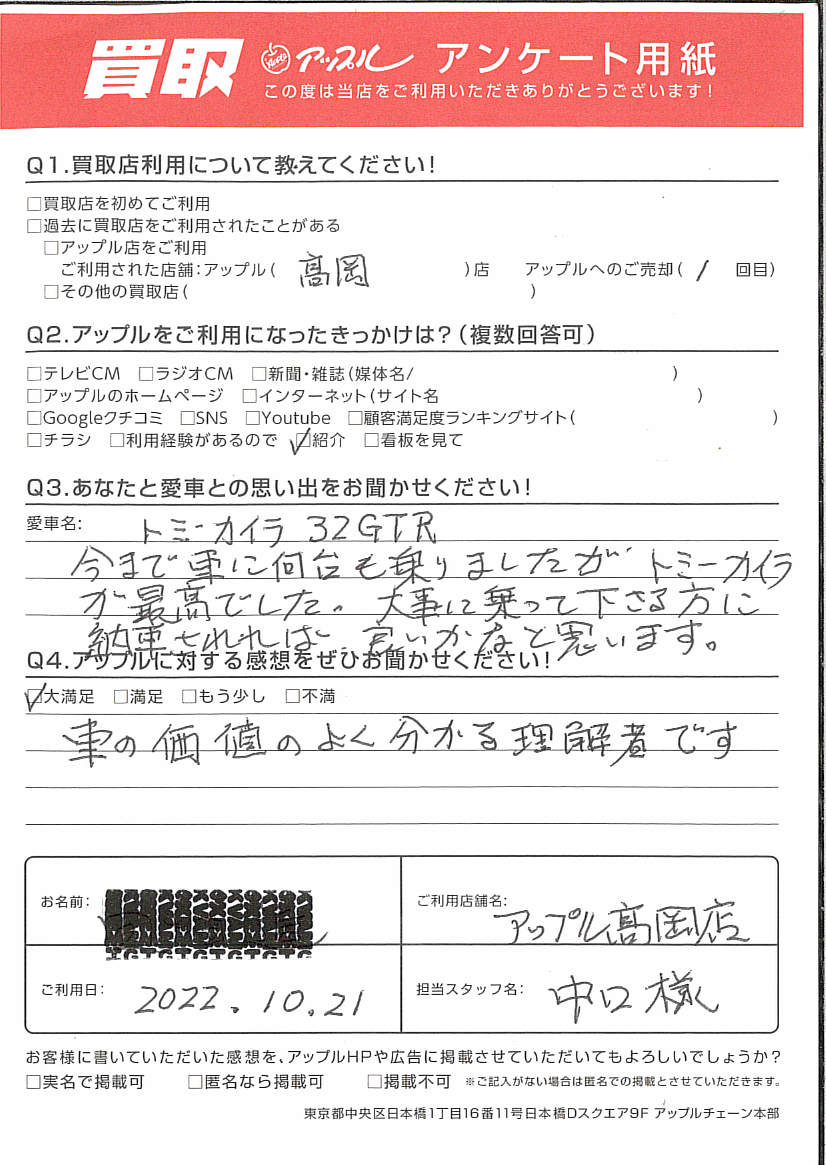 買取 アップル アンケート用紙
この度は当店をご利用いただきありがとうございます！
Q1.買取店利用について教えてください！
□買取店を初めてご利用
□過去に買取店をご利用されたことがある
□アップル店をご利用
ご利用された店舗：アップル（ 高岡 ）店 アップルへのご売却（ 1 回目）
□その他の買取店（ ）
Q2.アップルをご利用になったきっかけは？（複数回答可）
□テレビCM □ラジオCM □新聞・雑誌（媒体名/ ）
□アップルのホームページ □インターネット（サイト名 ）
□Googleクチコミ □SNS □Youtube □顧客満足度ランキングサイト（ ）
□チラシ □利用経験があるので ☑紹介 □看板を見て
Q3.あなたと愛車との思い出をお聞かせください！
愛車名： トミーカイラ 32GTR
今まで車に何台も乗りましたが トミーカイラ
が最高でした。大事に乗って下さる方に
納車されれば 良いかなと思います。
Q4.アップルに対する感想をぜひお聞かせください！
☑大満足 □満足 □もう少し □不満
車の価値のよく分かる理解者です
お名前： ご利用店舗名： アップル高岡店
ご利用日： 2022.10.21 担当スタッフ名： 中口様
お客様に書いていただいた感想を、アップルHPや広告に掲載させていただいてもよろしいでしょうか？
□実名で掲載可 □匿名なら掲載可 □掲載不可 ※ご記入がない場合は匿名での掲載とさせていただきます。
東京都中央区日本橋1丁目16番11号日本橋Dスクエア9F アップルチェーン本部